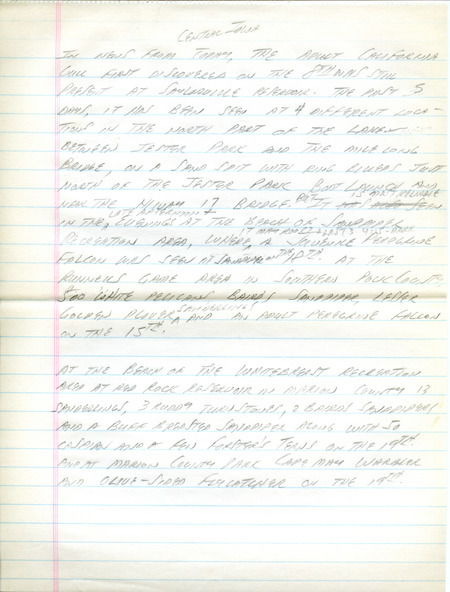 CENTRAL IOWA
IN NEWS FROM TODAY, THE ADULT CALIFORNIA
GULL FIRST DISCOVERED ON THE 8TH WAS STILL
PRESENT AT SAYLORVILLE RESERVOIR. THE PAST 5
DAYS, IT HAS BEEN SEEN AT 4 DIFFERENT LOCA-
TIONS IN THE NORTH PART OF THE LAKE
BETWEEN JESTER PARK AND THE MILE LONG
BRIDGE, ON A SAND SPIT WITH RING BILLEDS JUST
NORTH OF THE JESTER PARK BOAT LAUNCH AND
NEAR THE HIWAY 17 BRIDGE. BUT IS MOST RELIABLE
IN THE LATE AFTERNOON + EVENINGS AT THE BEACH OF SANDPIPER
RECREATION AREA, WHERE A JUVENILE PEREGRINE
FALCON WAS SEEN AT THE 10TH AT THE
RUNNELLS GAME AREA IN SOUTHERN POLK COUNTY,
500 WHITE PELICANS, BAIRD'S SANDPIPER, LESSER
GOLDEN PLOVER, SANDERLING, AND AN ADULT PEREGRINE FALCON
ON THE 15TH.
AT THE BEACH OF THE WHITEBREAST RECREATION
AREA AT RED ROCK RESERVOIR IN MARION COUNTY 13
SANDERLINGS, 3 RUDDY TURNSTONES, 2 BAIRDS SANDPIPERS
AND A BUFF BREASTED SANDPIPER ALONG WITH 50
CASPIAN AND A FEW FORSTER'S TERNS ON THE 19TH
AND AT MARION COUNTY PARK CAPE MAY WARBLER
AND OLIVE-SIDED FLYCATCHER ON THE 19TH.